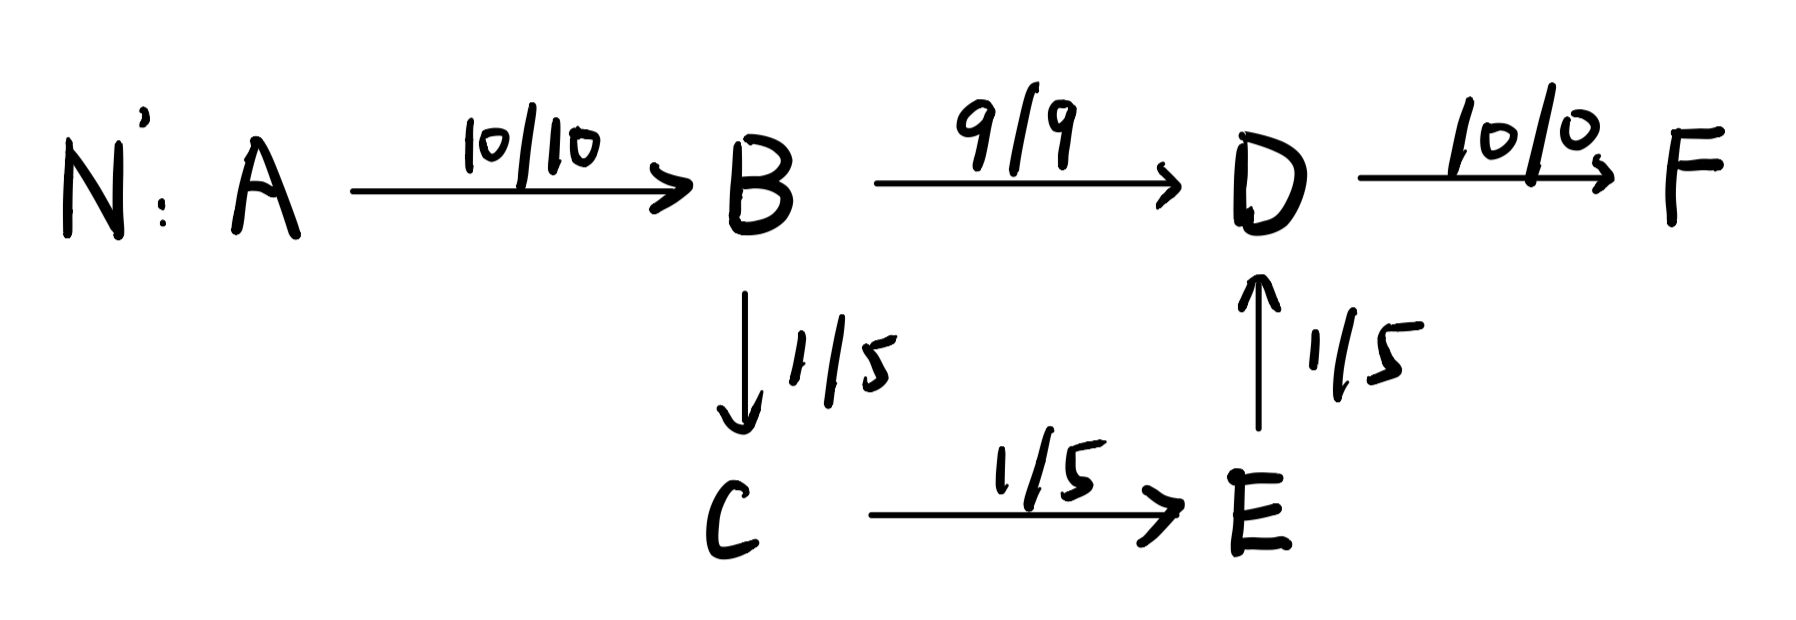 N': A 10/10 B 9/9 D 10/0 F
1/5 1/5
C 1/5 E